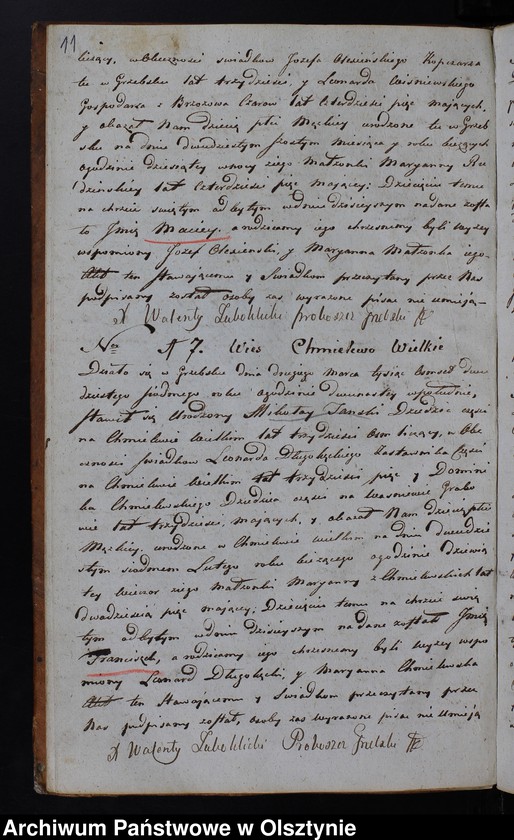 11
liczący, w Obecności swiadkow Jozefa Olesińskiego Kopczarza
tu w Grzebsku lat trzydzieści, y Leonarda Wiśniewskiego
Gospodarza z Brzozowa lat Czterdzieści pięć mających,
y okazał Nam dziecię płci Męskiey urodzone tu w Grzeb
sku na dniu dwudziestym szostym miesiąca y roku bieżących
ogodzinie dziesiątey wnocy ziego Małżonki Maryanny
lat Czterdzieści pięć mającey; Dziecięciu temu
na chrzcie swiętym odbytym wdniu dzisieyszym nadane zosta
ło Jmię Maciey, a rodzicami iego chrzesnemi byli wyzey
wspomniony Jozef Olesienski, y Maryanna Małżonka iego.
Akt ten stawaiącemu y Swiadkom przeczytany, przez Nas
podpisany został osoby zas wyrażone pisać nie umieią
X Walenty Luboklicki Proboszcz Grebski
Nro 7. Wies Chmielewo Wielkie
Działo się w Grzebsku dnia drugiego marca tysiąc osmset dwu
dziestego siodmego roku ogodzinie dwunastey wpołudnie,
stawił się Urodzony Mikołay Janski Dziedzic części
na Chmielewie Wielkim lat trzydzieści osm liczący, w Obe
cności Swiadkow Leonarda Długołęckiego Zastawnika Części
na Chmielewie Wielkim lat trzydzieści pięć y Domini
ka Chmielewskiego Dziedzica części na Krasnowie Grabo
wie lat trzydzieści, mających, y okazał Nam dziecię płci
Męskiey, urodzone w Chmielewie wielkim na dniu dwudzie
stym siodmem Lutego roku bieżącego ogodzinie dziewią
tey wieczor ziego Małżonki Maryanny z Chmielewskich lat
dwadzieścia pięć mającey; Dziecięciu temu na chrzcie swię
tym odbytym wdniu dzisieyszym nadane zostało Jmię
Franciszek, a rodzicami iego chrzesnemi byli wyzey wspo
mniony Leonard Długołęcki, y Maryanna Chmielewska
Akt ten stawaiącemu y Swiadkom przeczytany przez
Nas podpisany został, osoby zas wyrażone pisać nie umieią
X Walenty Luboklicki Proboszcz Grebski
Archiwum Państwowe w Olsztynie